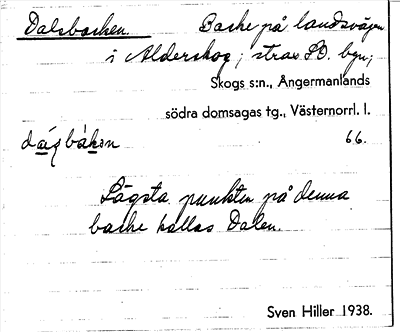 Dalsbacken. Backe på landsvägen
i Alderskog, strax SO. byn,
Skogs s:n., Ångermanlands
södra domsagas tg., Västernorrl. l.
66.
Lägsta punkten på denna
backe kallas Dalen.
Sven Hiller 1938.